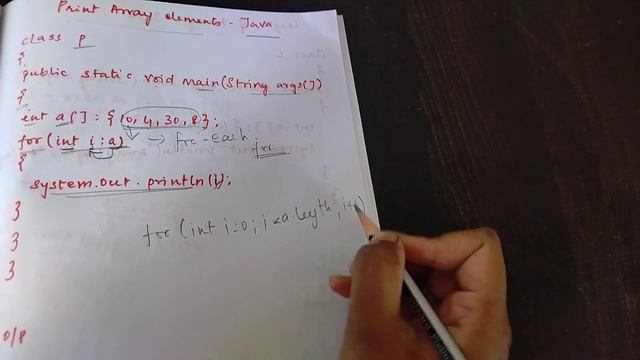 Print Array elements - Java
class P
{
public static void main(String args[])
{
int a[] = {10, 4, 30, 8};
for(int i:a) → for-each
for
{
system.out.println(i);
}
}
}
for (int i=0; i<a.length; i++)
O/P